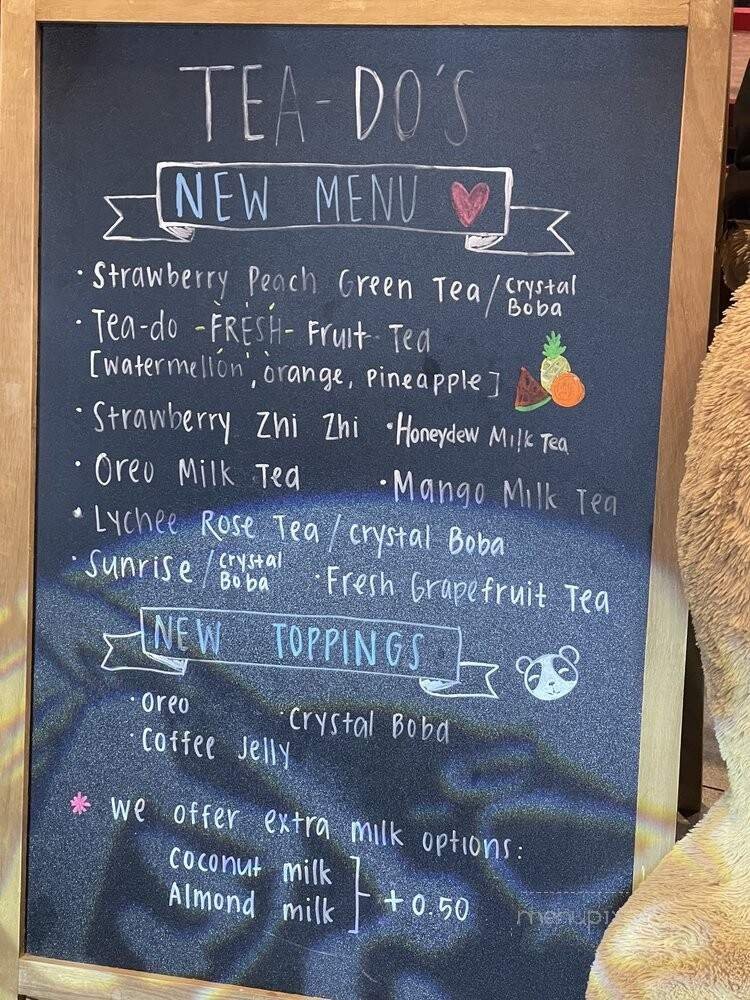 TEA-DO'S
NEW MENU
· Strawberry Peach Green Tea / Crystal Boba
· Tea-do -FRESH- Fruit Tea
[watermellon, orange, pineapple]
· Strawberry Zhi Zhi · Honeydew Milk Tea
· Oreo Milk Tea · Mango Milk Tea
· Lychee Rose Tea / crystal Boba
· Sunrise / crystal Boba · Fresh Grapefruit Tea
NEW TOPPINGS
· Oreo · Crystal Boba
· Coffee Jelly
* we offer extra milk options:
coconut milk
Almond milk ] + 0.50